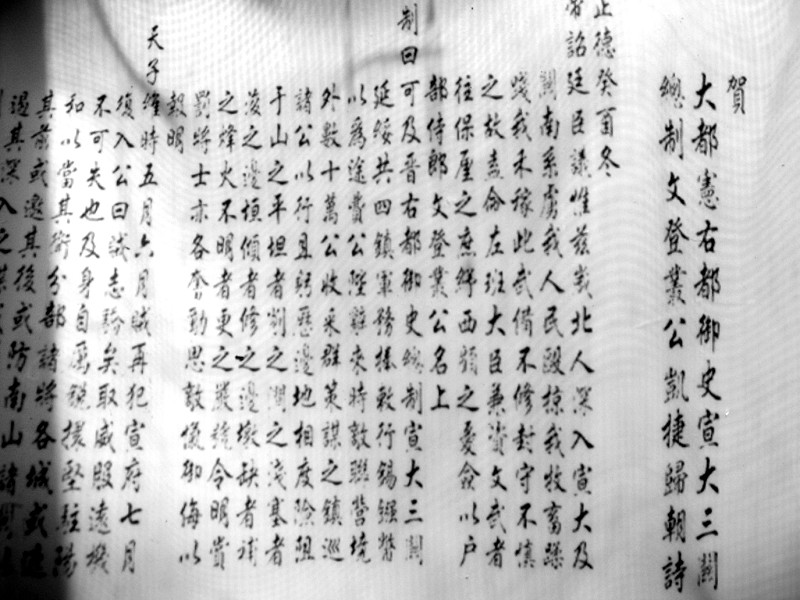 賀
大都憲右都御史宣大三關
總制文登叢公凱捷歸朝詩
正德癸酉冬
帝詔廷臣議惟茲歲北人深入寅大及
關南系虜我人民毆掠我牧畜蹂
踐我禾稼此武備不修封守不慎
之故盍僉左班大臣兼資文武者
往保厘之庶紓西顧之憂僉以戶
部侍郎文登叢公名上
制曰可及晉右都御史總制寅大三關
延綏共四鎮軍務授敕行錫鏹幣
以為途費公陛辭來時敦聯營境
外數十萬公收采群策謀之鎮巡
諸公以行且躬歷邊地相度險阻
于山之平坦者削之澗之淺塞者
浚之邊垣傾者修之邊墩缺者補
之烽火不明者更之嚴號令明賞
罰將士亦各奮勵思敵愾御侮以
報明
天子維時五月六月賊再犯宣府七月
復入公曰誠志驕矣取威服遠機
不可失也及身自為銳擐堅駐陽
和以當其衝分部諸將各城或遠
其前或邀其後或防南山諸關
過其深入之謀